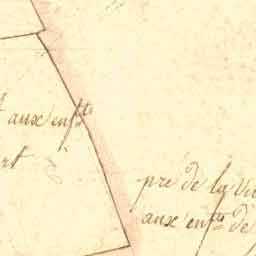 aux enf.ts
pré de la
aux enf.ts de